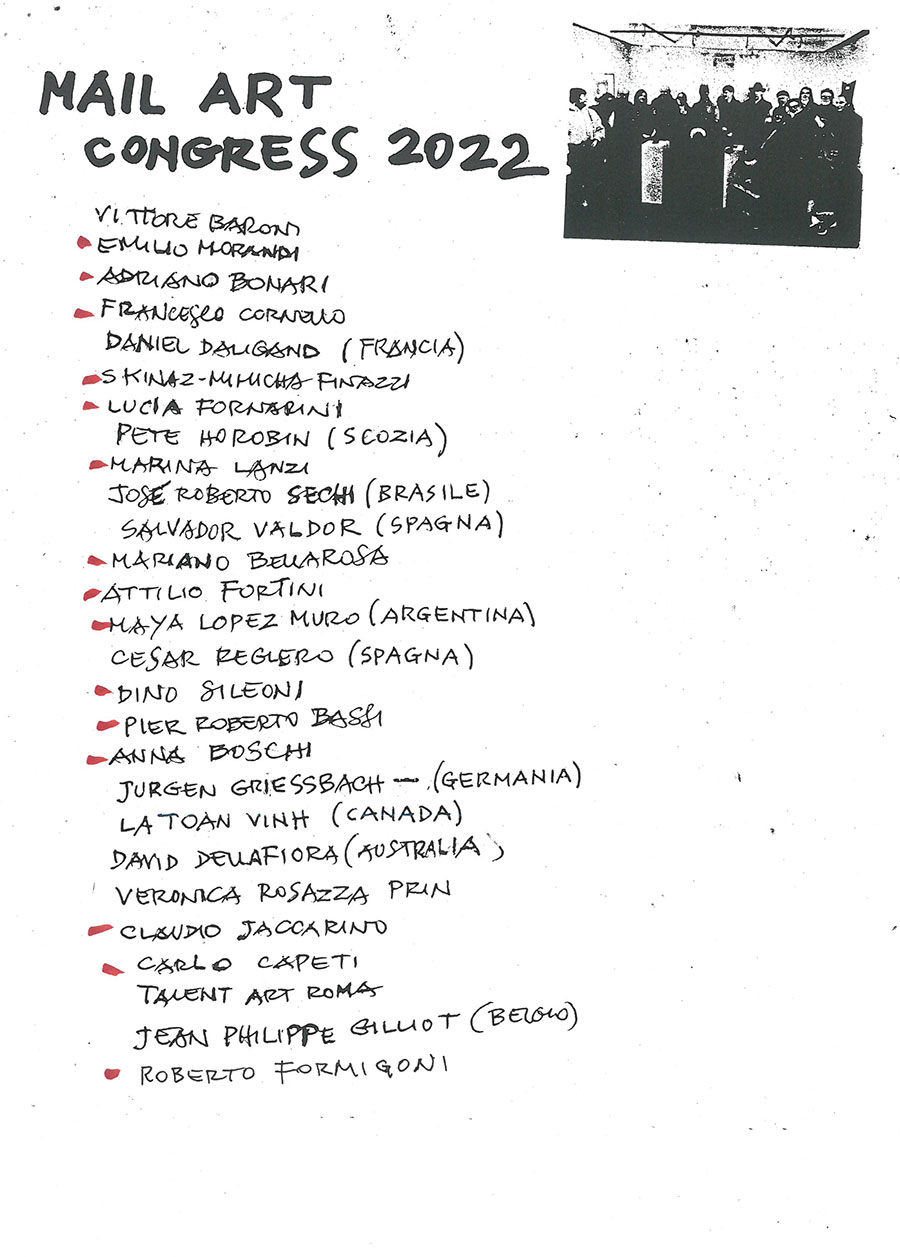 MAIL ART
CONGRESS 2022
VITTORE BARONI
EMILIO MORANDI
ADRIANO BONARI
FRANCESCO CORNELLO
DANIEL DALIGAND (FRANCIA)
SKINAZ-MIMICHA FINAZZI
LUCIA FORNARINI
PETE HOROBIN (SCOZIA)
MARINA LANZI
JOSÉ ROBERTO SECHI (BRASILE)
SALVADOR VALDOR (SPAGNA)
MARIANO BELLAROSA
ATTILIO FORTINI
MAYA LOPEZ MURO (ARGENTINA)
CESAR REGLERO (SPAGNA)
DINO SILEONI
PIER ROBERTO BASSI
ANNA BOSCHI
JURGEN GRIESSBACH — (GERMANIA)
LA TOAN VINH (CANADA)
DAVID DELLAFIORA (AUSTRALIA)
VERONICA ROSAZZA PRIN
CLAUDIO JACCARINO
CARLO CAPETI
TALENT ART ROMA
JEAN PHILIPPE GILLIOT (BELGIO)
ROBERTO FORMIGONI